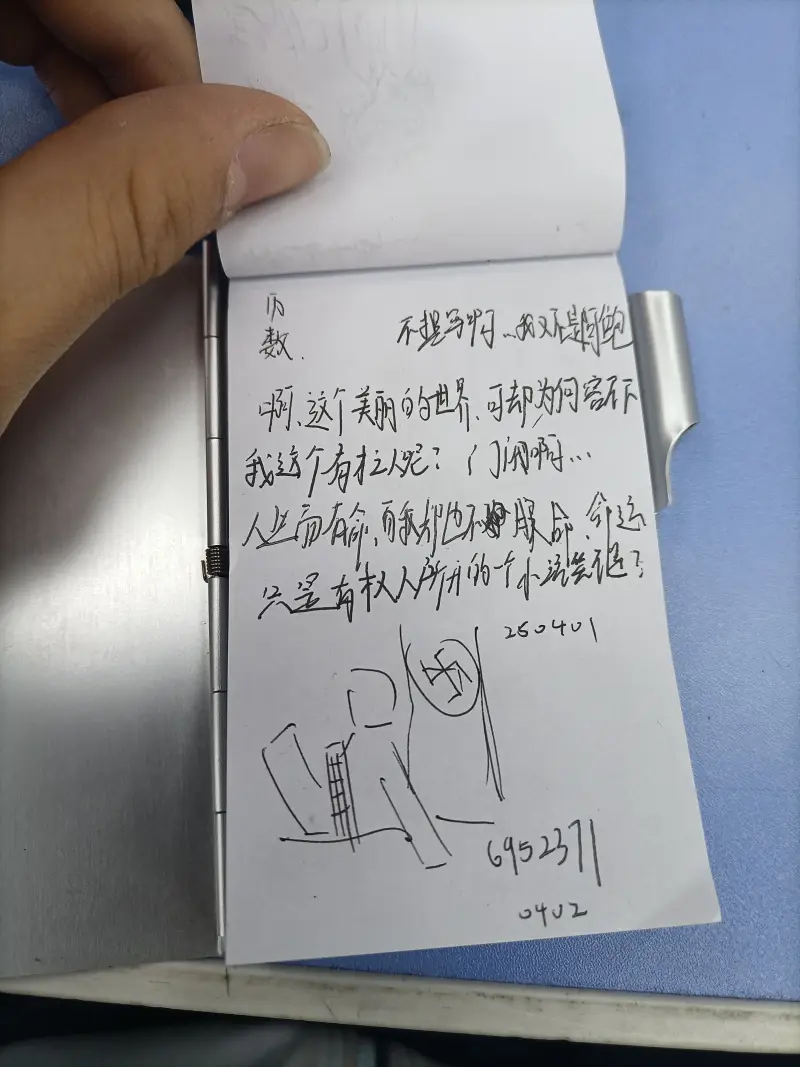 数.
不想写啊...我又不是阿鲍
啊、这个美丽的世界、可却为何容不下
我这个有权人呢？门闭啊...
人生而有命,可我却也不服命、命运
只是有权人所开的一个小玩笑罢了
250401
6952371
0402